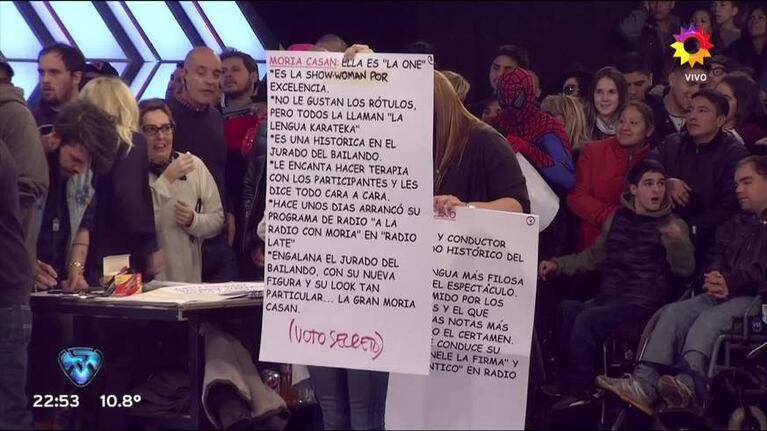 MORIA CASAN: ELLA ES "LA ONE"
*ES LA SHOW-WOMAN POR
EXCELENCIA.
*NO LE GUSTAN LOS RÓTULOS,
PERO TODOS LA LLAMAN "LA
LENGUA KARATEKA"
*ES UNA HISTÓRICA EN EL
JURADO DEL BAILANDO.
*LE ENCANTA HACER TERAPIA
CON LOS PARTICIPANTES Y LES
DICE TODO CARA A CARA.
*HACE UNOS DIAS ARRANCÓ SU
PROGRAMA DE RADIO "A LA
RADIO CON MORIA" EN "RADIO
LATE"
*ENGALANA EL JURADO DEL
BAILANDO, CON SU NUEVA
FIGURA Y SU LOOK TAN
PARTICULAR... LA GRAN MORIA
CASAN.
(VOTO SECRETO)
Y CONDUCTOR
DO HISTÓRICO DEL
NGUA MÁS FILOSA
EL ESPECTÁCULO.
MIDO POR LOS
S Y EL QUE
AS NOTAS MÁS
O EL CERTAMEN.
E CONDUCE SU
NELE LA FIRMA" Y
NTICO" EN RADIO
VIVO
22:53 10.8°